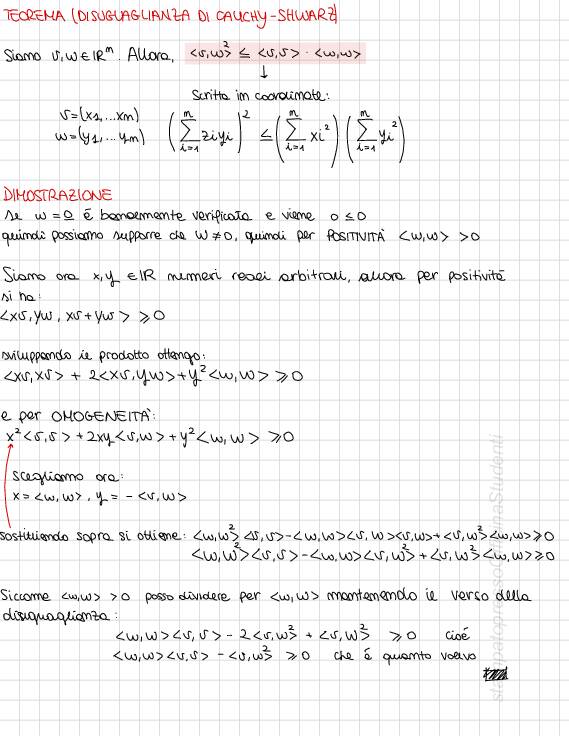 TEOREMA (DISUGUAGLIANZA DI CAUCHY-SHWARZ)
Siano v, w ∈ ℝⁿ. Allora, <v,w>² ≤ <v,v> · <w,w>
↓
Scritta in coordinate:
v=(x1,...xn)
w=(y1,...yn) (∑ⁿᵢ₌₁ ziyi)² ≤ (∑ⁿᵢ₌₁ xi²) (∑ⁿᵢ₌₁ yi²)
DIMOSTRAZIONE
se w = 0 é banalmente verificata e viene 0 ≤ 0
quindi possiamo supporre che w ≠ 0, quindi per POSITIVITÀ <w,w> > 0
Siano ora x, y ∈ ℝ numeri reali arbitrari, allora per positivitá
si ha:
<xv, yw, xv + yw> ⩾ 0
sviluppando il prodotto ottengo:
<xv,xv> + 2<xv,yw> + y²<w,w> ⩾ 0
e per OMOGENEITÀ:
x²<v,v> + 2xy<v,w> + y²<w,w> ⩾ 0
scegliamo ora:
x = <w,w>, y = - <v,w>
sostituendo sopra si ottiene: <w,w>²<v,v> - <w,w><v,w><v,w> + <v,w>²<w,w> ⩾ 0
<w,w>²<v,v> - <w,w><v,w>² + <v,w>²<w,w> ⩾ 0
Siccome <w,w> > 0 posso dividere per <w,w> mantenendo il verso della
disuguaglianza:
<w,w><v,v> - 2<v,w>² + <v,w>² ⩾ 0 cioé
<w,w><v,v> - <v,w>² ⩾ 0 che é quanto volevo